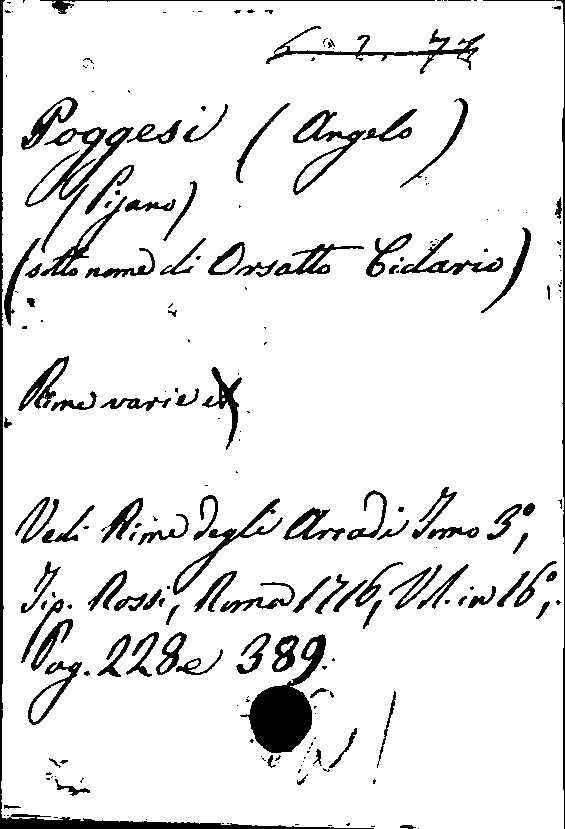 6. 2. 77
Poggesi (Angelo)
(Pijano)
(sotto nome di Orsatto Cidario)
Rime varie
Vedi Rime degli Arcadi Tomo 3º,
Tip. Rossi, Roma 1716, Vol. in 16º,
Pag. 228 e 389.